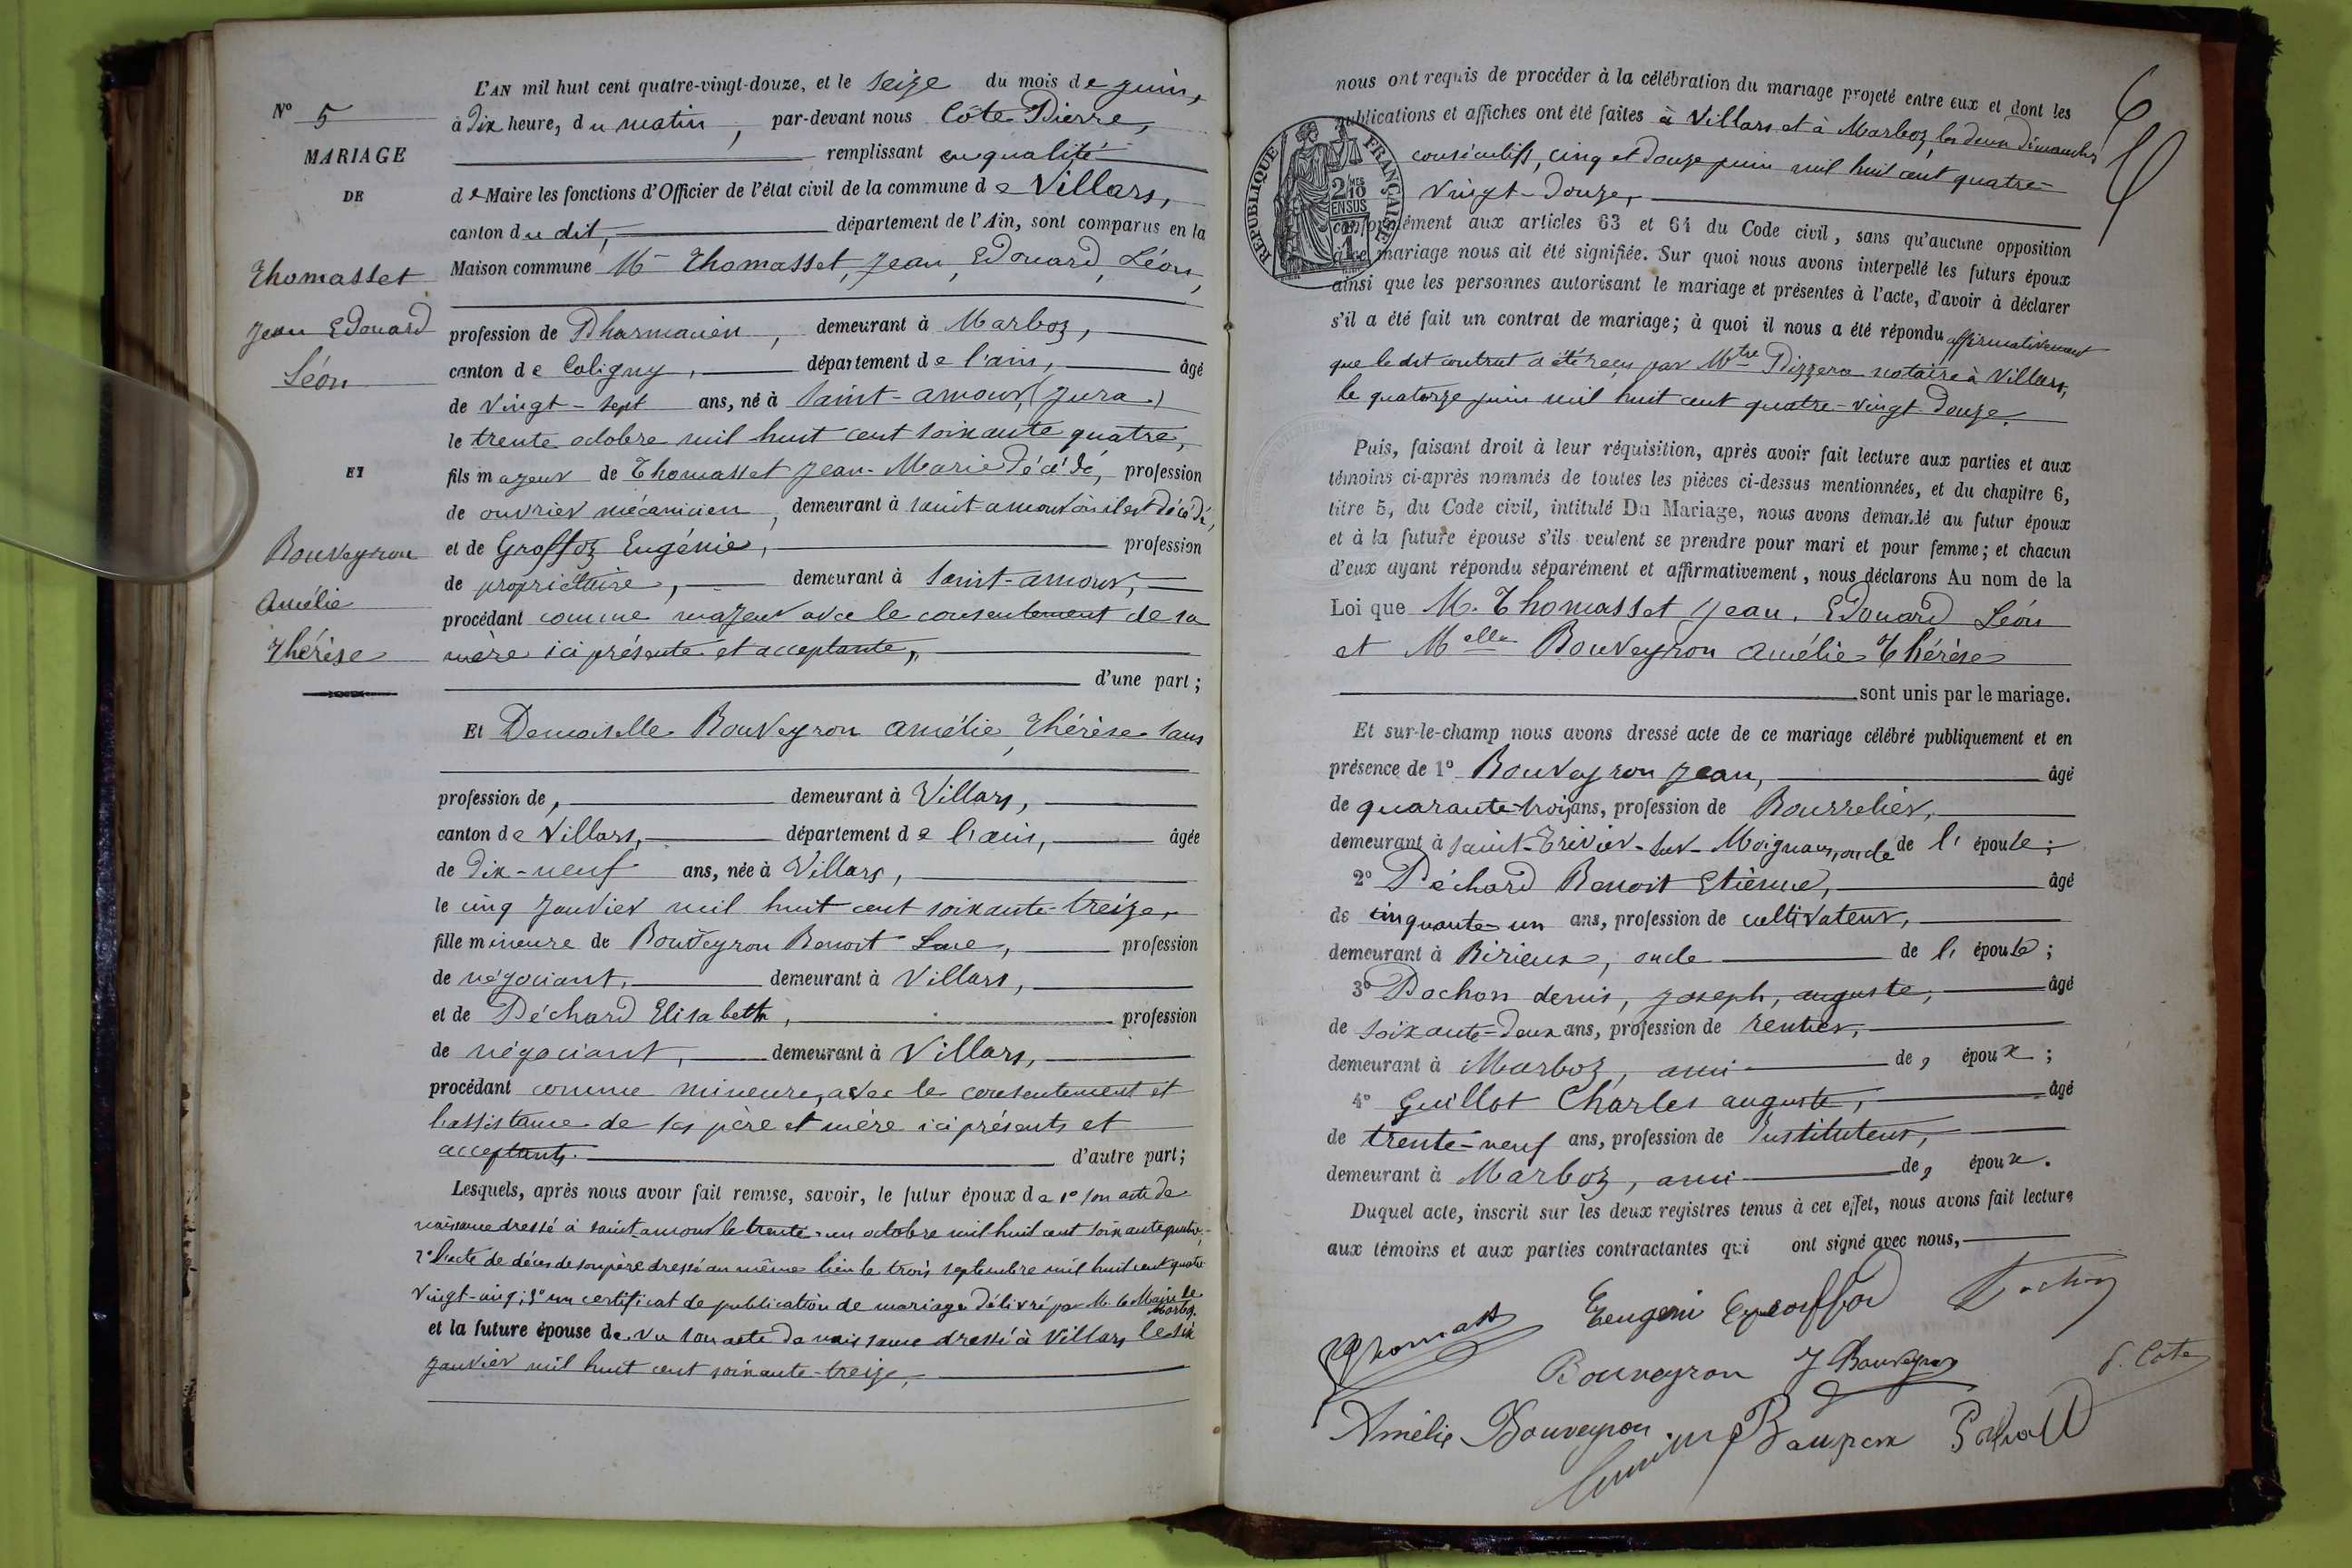 N° 5
MARIAGE
DE
Thomasset
Jean Edouard
Léon
ET
Bouveyron
Amélie
Thérèse
L'AN mil huit cent quatre-vingt-douze, et le seize du mois de juin,
à dix heure, du matin, par-devant nous Côte Pierre,
remplissant en qualité
de Maire les fonctions d'Officier de l'état civil de la commune de Villars,
canton du dit, département de l'Ain, sont comparus en la
Maison commune Mr Thomasset, Jean, Edouard, Léon,
profession de Pharmacien, demeurant à Marboz,
canton de Coligny, département de l'ain, âgé
de vingt-sept ans, né à Saint-amour, (Jura.)
le trente octobre mil huit cent soixante quatre,
fils majeur de Thomasset Jean-Marie décédé, profession
de ouvrier mécanicien, demeurant à saint-amour où il est décédé,
et de Groffoz Eugénie, profession
de propriétaire, demeurant à Saint-amour,
procédant comme majeur avec le consentement de sa
mère ici présente et acceptante,
d'une part;
Et Demoiselle Bouveyron Amélie, Thérèse sans
profession de, demeurant à Villars,
canton de Villars, département de l'ain, âgée
de dix-neuf ans, née à Villars,
le cinq janvier mil huit cent soixante-treize,
fille mineure de Bouveyron Benoit Luc, profession
de négociant, demeurant à Villars,
et de Péchard Elisabeth, profession
de négociant, demeurant à Villars,
procédant comme mineure, avec le consentement et
l'assistance de ses père et mère ici présents et
acceptants. d'autre part;
Lesquels, après nous avoir fait remise, savoir, le futur époux de 1° son acte de
naissance dressé à saint amour le trente-un octobre mil huit cent soixante quatre;
2° l'acte de décès de son père dressé au même lieu le trois septembre mil huit cent quatre
vingt-cinq; 3° un certificat de publication de mariage délivré par M. le Maire de
Marboz.
et la future épouse de vu son acte de naissance dressé à Villars, le six
janvier mil huit cent soixante-treize,
nous ont requis de procéder à la célébration du mariage projeté entre eux et dont les
publications et affiches ont été faites à Villars et à Marboz, les deux dimanches
consécutifs, cinq et douze juin mil huit cent quatre-
vingt-douze,
RÉPUBLIQUE FRANÇAISE
2/10 EN SUS
conformément aux articles 63 et 64 du Code civil, sans qu'aucune opposition
à ce mariage nous ait été signifiée. Sur quoi nous avons interpellé les futurs époux
ainsi que les personnes autorisant le mariage et présentes à l'acte, d'avoir à déclarer
s'il a été fait un contrat de mariage; à quoi il nous a été répondu affirmativement
que le dit contrat a été reçu par Mtre Pizzera notaire à Villars,
le quatorze juin mil huit cent quatre-vingt-douze.
Puis, faisant droit à leur réquisition, après avoir fait lecture aux parties et aux
témoins ci-après nommés de toutes les pièces ci-dessus mentionnées, et du chapitre 6,
titre 5, du Code civil, intitulé Du Mariage, nous avons demandé au futur époux
et à la future épouse s'ils veulent se prendre pour mari et pour femme; et chacun
d'eux ayant répondu séparément et affirmativement, nous déclarons Au nom de la
Loi que M. Thomasset Jean, Edouard Léon
et Melle Bouveyron Amélie Thérèse
sont unis par le mariage.
Et sur-le-champ nous avons dressé acte de ce mariage célébré publiquement et en
présence de 1° Bouveyron Jean, âgé
de quarante-trois ans, profession de Bourrelier,
demeurant à Saint-Trivier-sur-Moignans, oncle de l' épouse;
2° Péchard Benoit Etienne, âgé
de cinquante-un ans, profession de cultivateur,
demeurant à Birieux, oncle de l' épouse;
3° Pochon denis, Joseph, auguste, âgé
de soixante-deux ans, profession de rentier,
demeurant à Marboz, ami de, époux;
4° Guillot Charles auguste, âgé
de trente-neuf ans, profession de Instituteur,
demeurant à Marboz, ami de, époux.
Duquel acte, inscrit sur les deux registres tenus à cet effet, nous avons fait lecture
aux témoins et aux parties contractantes qui ont signé avec nous,
Bouveyron J Bouveyron P. Cote
Amélie Bouveyron